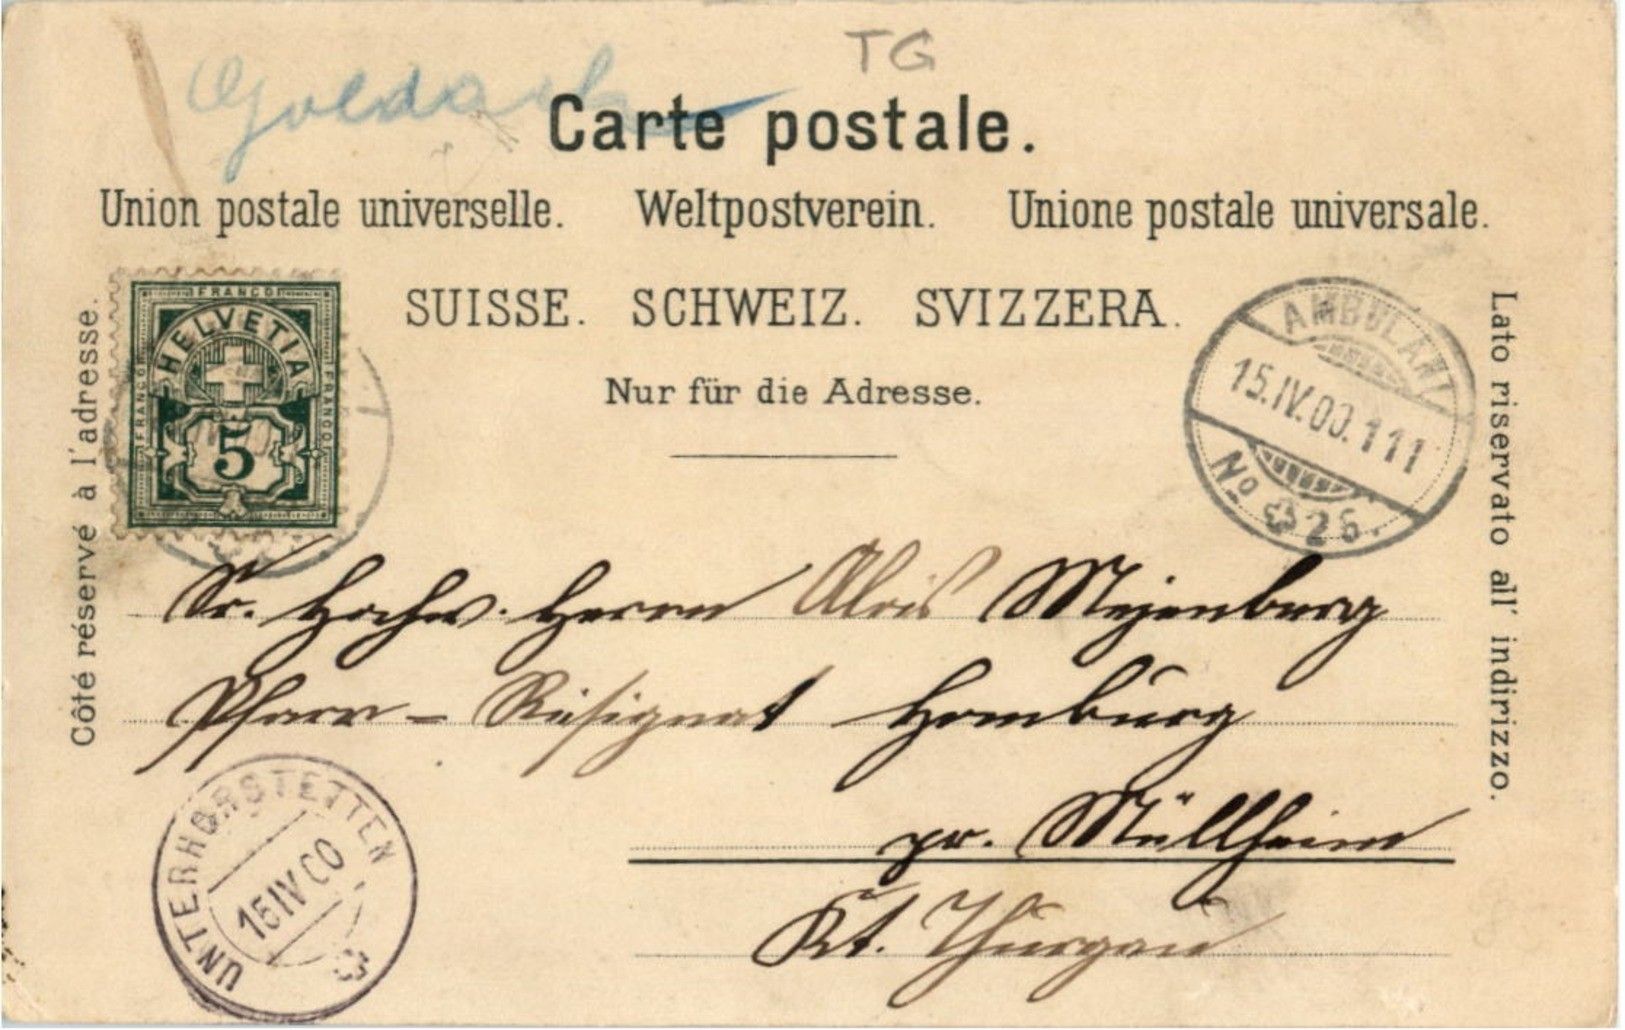 Goldach
TG
Carte postale.
Union postale universelle. Weltpostverein. Unione postale universale.
SUISSE. SCHWEIZ. SVIZZERA.
Nur für die Adresse.
Côté réservé à l'adresse.
Lato riservato all' indirizzo.
FRANCO
FRANCO
FRANCO
HELVETIA
5
AMBULANT
15.IV.00.111
No 26.
Sr. Hochw. Herrn Alois Mejenburg
Pfarr-Resignat Homburg
pr. Müllheim
Kt. Thurgau
UNTERHÖRSTETTEN
15 IV 00